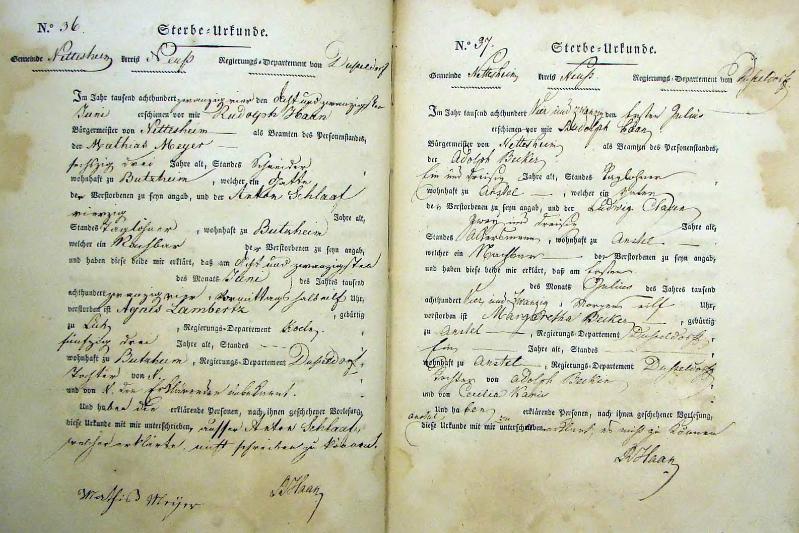 N.º 36. Sterbe=Urkunde.
Gemeinde Nettesheim Kreis Neuß Regierungs=Departement von Dusseldorf
Im Jahr tausend achthundert zwanzig vier den Acht und zwanzigsten
Juni erschienen vor mir Rudolph Haan
Bürgermeister von Nettesheim als Beamten des Personenstandes,
der Mathias Meyer
sechszig drei Jahre alt, Standes Schneider
wohnhaft zu Butzheim, welcher ein Gatte
der Verstorbenen zu seyn angab, und der Anton Schlaaf
vierzig Jahre alt,
Standes Taglöhner, wohnhaft zu Butzheim
welcher ein Nachbar der Verstorbenen zu seyn angab,
und haben diese beide mir erklärt, daß am Acht und zwanzigsten
des Monats Juni des Jahres tausend
achthundert zwanzig vier Vormittags halb elf Uhr,
verstorben ist Agnes Lambertz, gebürtig
zu, Regierungs=Departement
fünfzig drei Jahre alt, Standes
wohnhaft zu Butzheim, Regierungs=Departement Dusseldorf,
Tochter von
und von
Und haben die erklärende Personen, nach ihnen geschehener Vorlesung,
diese Urkunde mit mir unterschrieben, ausser Anton Schlaaf,
welcher erklärte nicht schreiben zu können.
Mathias Meyer RHaan
N.º 37. Sterbe=Urkunde.
Gemeinde Nettesheim Kreis Neuß Regierungs=Departement von Dusseldorf
Im Jahr tausend achthundert Vier und zwanzig den Ersten Julius
erschienen vor mir Rudolph Haan
Bürgermeister von Nettesheim als Beamten des Personenstandes,
der Adolph Becker
Ein und dreisig Jahre alt, Standes Taglöhner
wohnhaft zu Anstel, welcher ein Vater
der Verstorbenen zu seyn angab, und der Ludwig
zwey und dreisig Jahre alt,
Standes Ackersmann, wohnhaft zu Anstel
welcher ein Nachbar der Verstorbenen zu seyn angab,
und haben diese beide mir erklärt, daß am Ersten
des Monats Julius des Jahres tausend
achthundert Vier und zwanzig, Morgens elf Uhr,
verstorben ist Margaretha Becker, gebürtig
zu Anstel, Regierungs=Departement Dusseldorf
Ein Jahre alt, Standes
wohnhaft zu Anstel, Regierungs=Departement Dusseldorf
Tochter von Adolph Becker
und von Cecilia
Und haben erklärende Personen, nach ihnen geschehener Verlesung,
diese Urkunde mit mir unterschrieben erklärt, es nicht zu können
RHaan